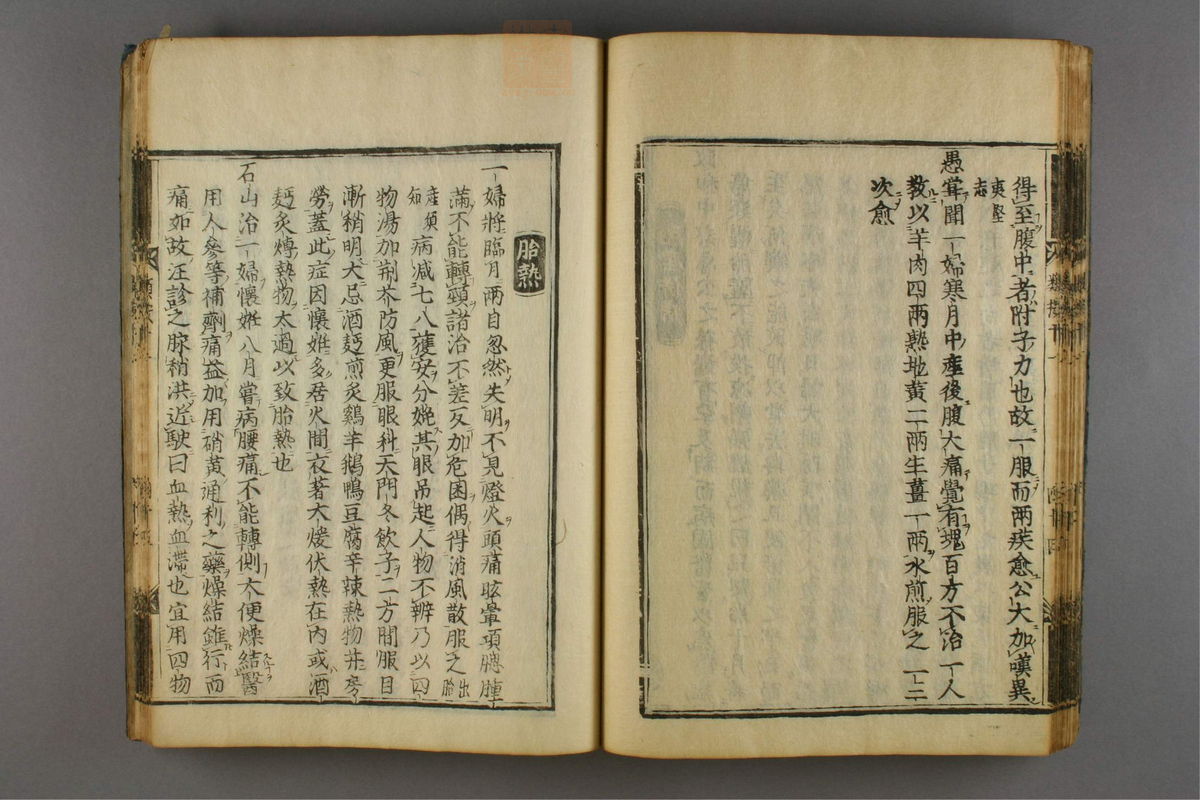 得至腹中者附子力也故一服而兩疾愈公大加嘆異
夷堅
志
愚甞聞一婦寒月中產後腹大痛覺有塊百方不治一人
教以羊肉四兩熟地黃二兩生薑一兩水煎服之一二
次愈
胎熱
一婦將臨月兩目忽然失明不見燈火頭痛眩暈項腮腫
滿不能轉頸諸治不差反加危困偶得消風散服之出胎
產須知
病減七八獲安分娩其眼吊起人物不辨乃以四
物湯加荆芥防風更服眼科天門冬飲子二方間服目
漸稍明大忌酒麪煎炙鷄羊鵝鴨豆腐辛辣熱物并房
勞蓋此症因懷姙多居火間衣著大煖伏熱在內或酒
麪炙煿熱物太過以致胎熱也
石山治一婦懷姙八月嘗病腰痛不能轉側大便燥結醫
用人參等補劑痛益加用硝黃通利之藥燥結雖行而
痛如故汪診之脉稍洪近駛曰血熱血滯也宜用四物